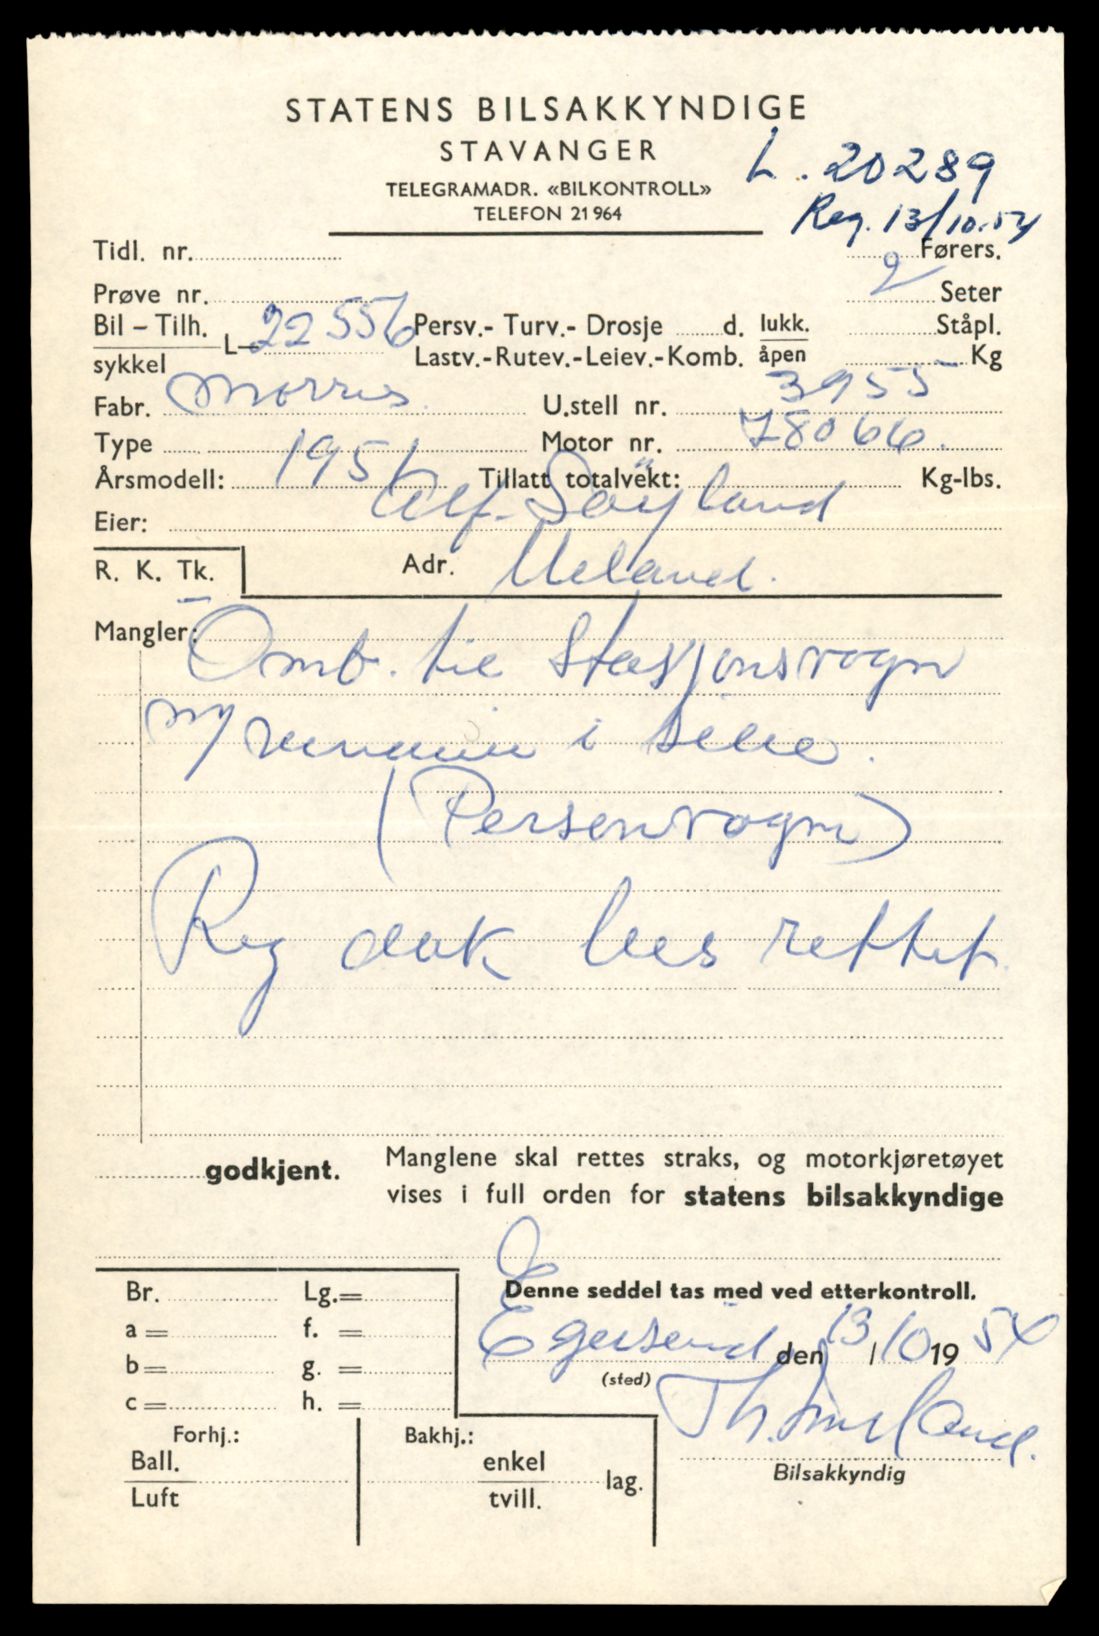 STATENS BILSAKKYNDIGE
STAVANGER
TELEGRAMADR. «BILKONTROLL»
TELEFON 21 964
L. 20289
Reg. 13/10.54
Tidl. nr.
Førers.
Prøve nr.
2 Seter
Bil – Tilh.
sykkel
L— 22556
Persv.- Turv.- Drosje d. lukk.
Ståpl.
Lastv.-Rutev.-Leiev.-Komb. åpen
Kg
Fabr. Morris
U.stell nr. 3955
Type
Motor nr. 78066.
Årsmodell: 1951
Tillatt totalvekt: Kg-lbs.
Eier: Alf. Søyland
R. K. Tk.
Adr. Ueland.
Mangler:
Omb. til Stasjonsvogn
i
(Personvogn)
Reg rettet
godkjent.
Manglene skal rettes straks, og motorkjøretøyet
vises i full orden for statens bilsakkyndige
Denne seddel tas med ved etterkontroll.
Br. Lg.=
a = f. =
b = g. =
c = h. =
Egersund den 13/10 19 54
(sted)
Bilsakkyndig
Forhj.: Bakhj.:
Ball. enkel
Luft tvill. lag.